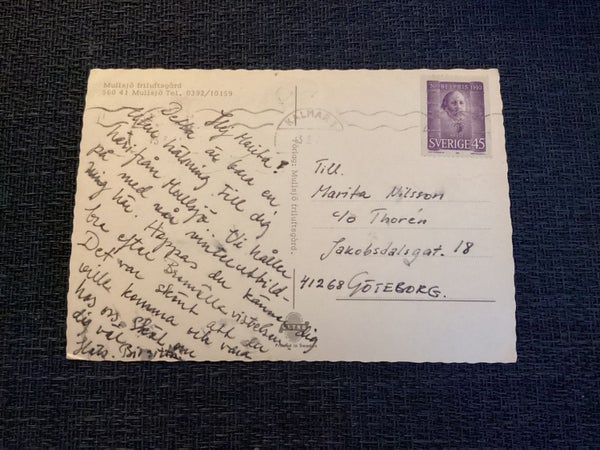 Mullsjö friluftsgård
560 41 Mullsjö Tel. 0392/10159
Hej Marita!
Detta är bara en
liten hälsning till dig
här ifrån Mullsjö. Vi håller
på med vår vinterutbild-
ning här. Hoppas du känner dig
bra efter vistelsen
Det var skönt att du
ville komma och vara
hos oss. Sköt om
dig väl
Birgitta
Förlag: Mullsjö friluftsgård.
KALMAR
NOBELPRIS
SVERIGE 45
Till.
Marita Nilsson
c/o Thorén
Jakobsdalsgat. 18
41268 GÖTEBORG.
Printed in Sweden